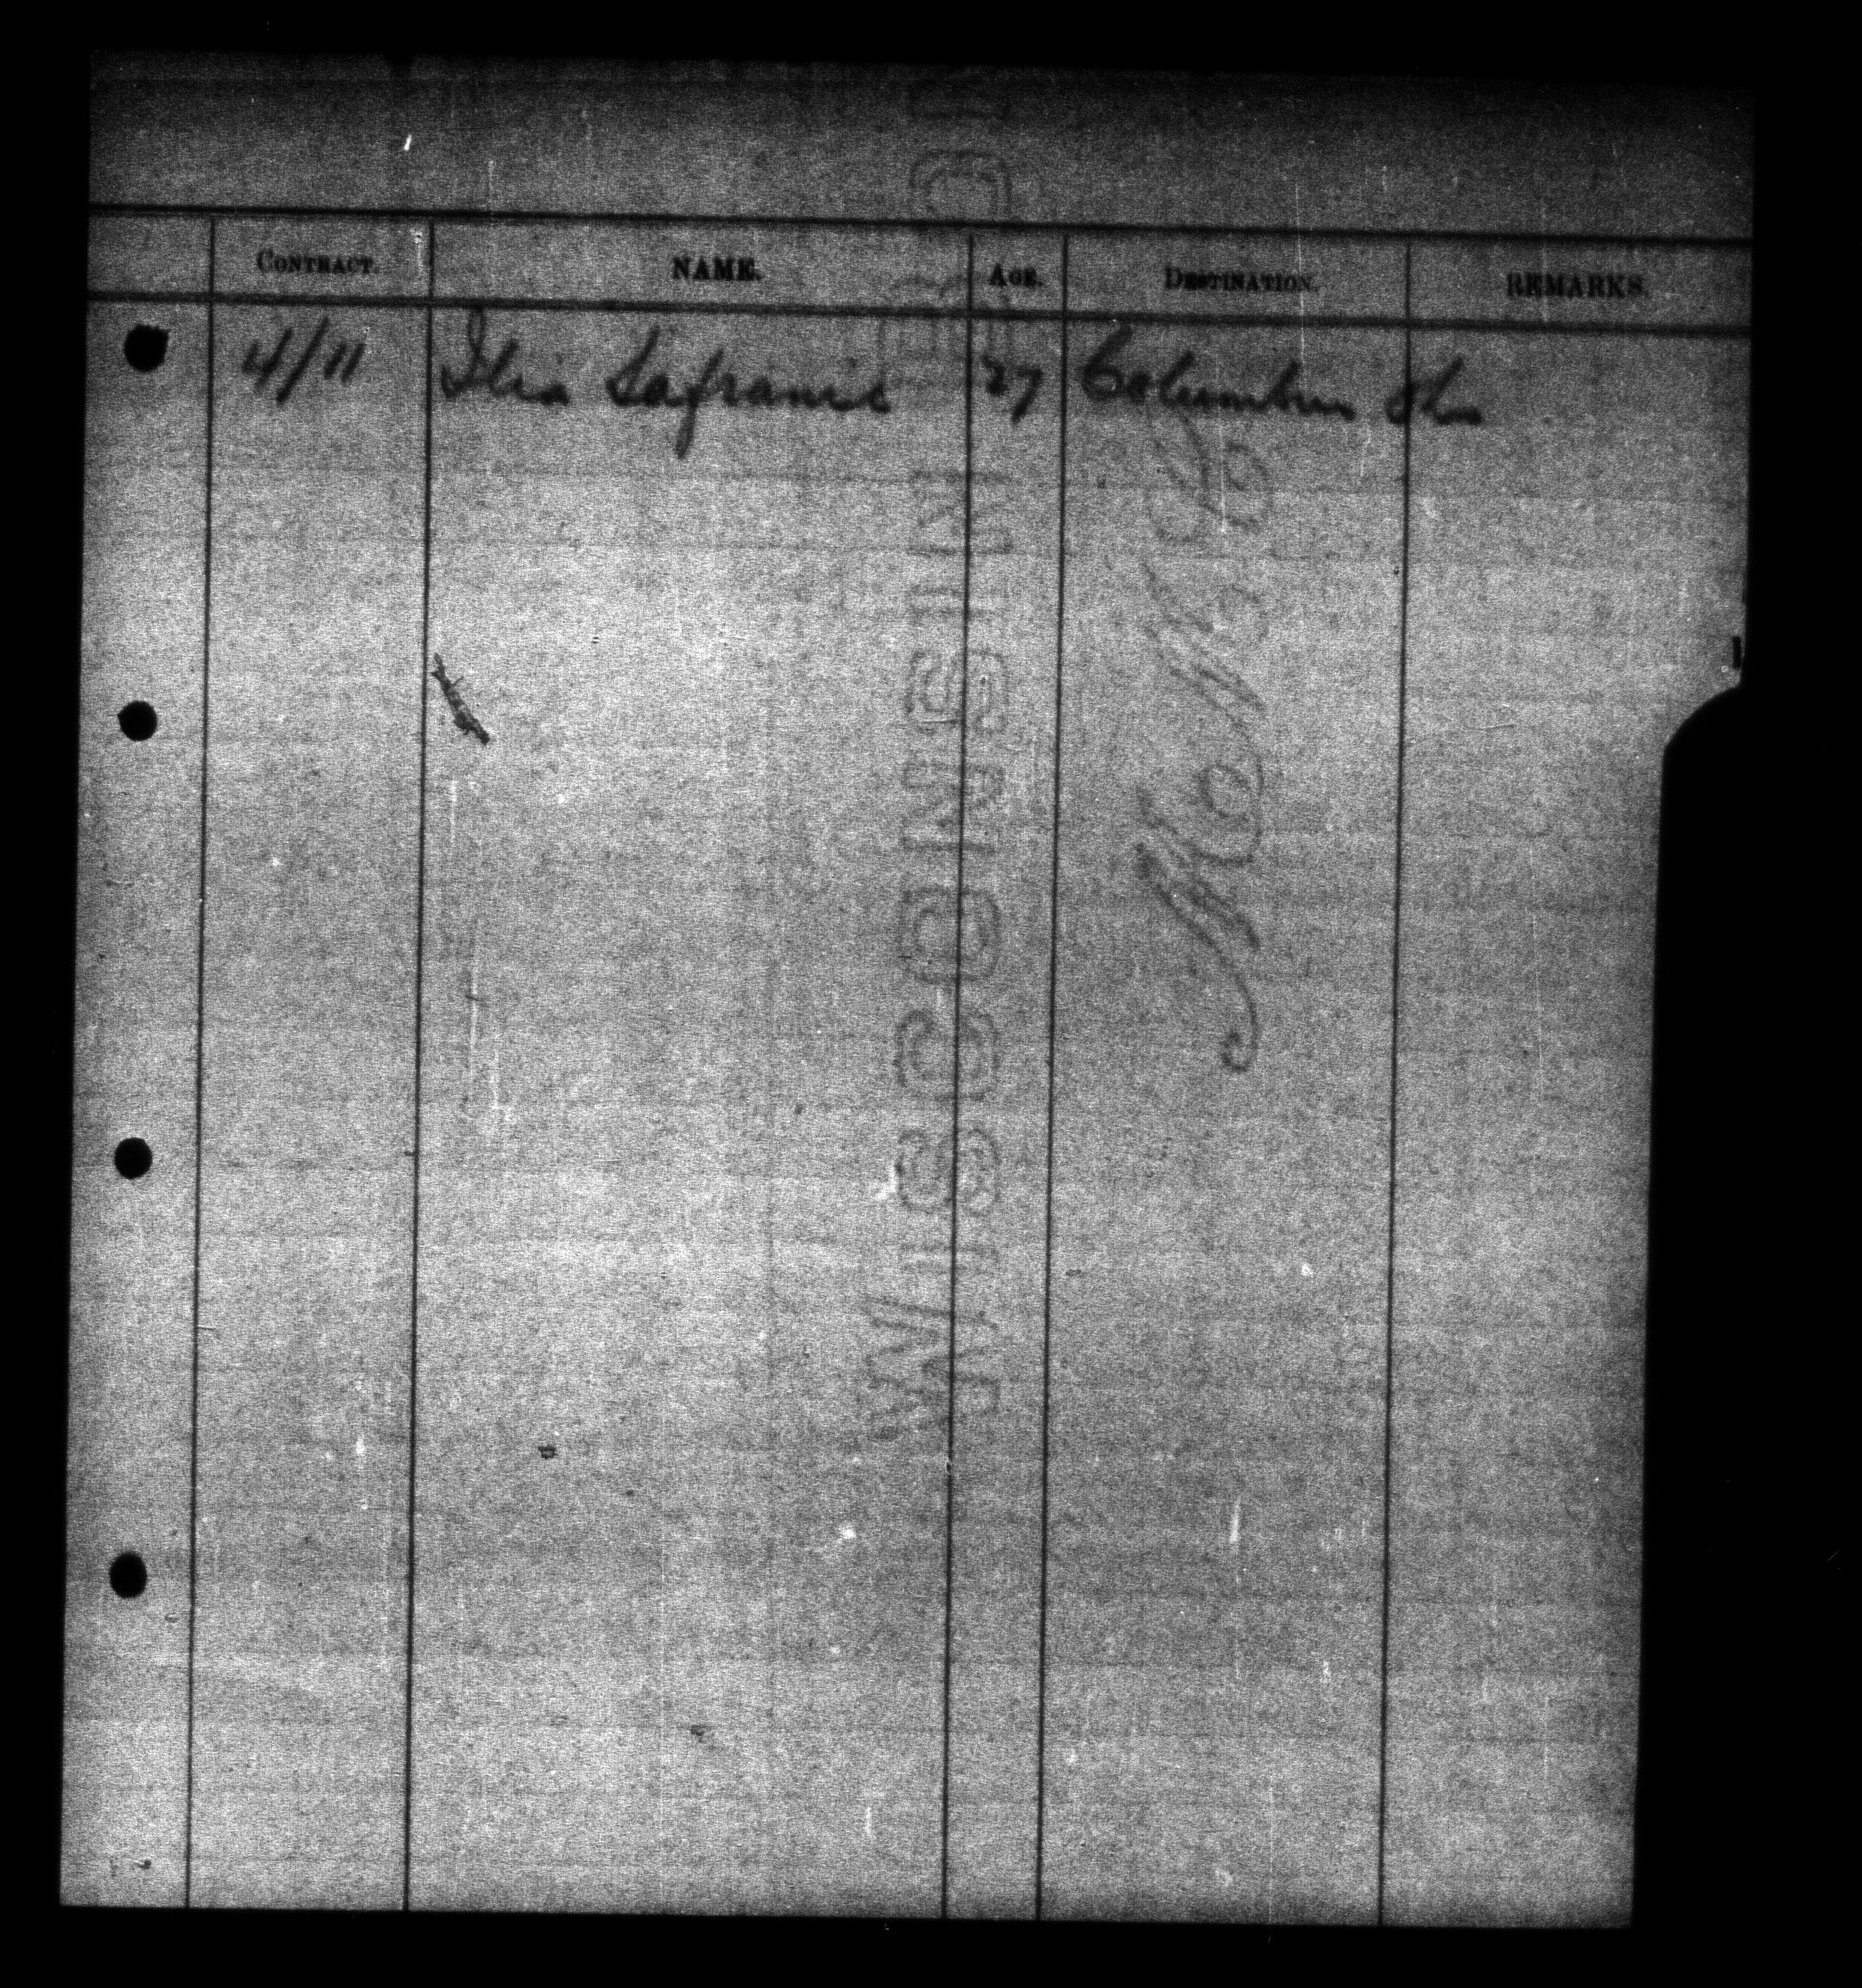 CONTRACT. NAME. AGE. DESTINATION. REMARKS.
4/11 Ilia Safranic 27 Columbus Oho
WISCONSIN